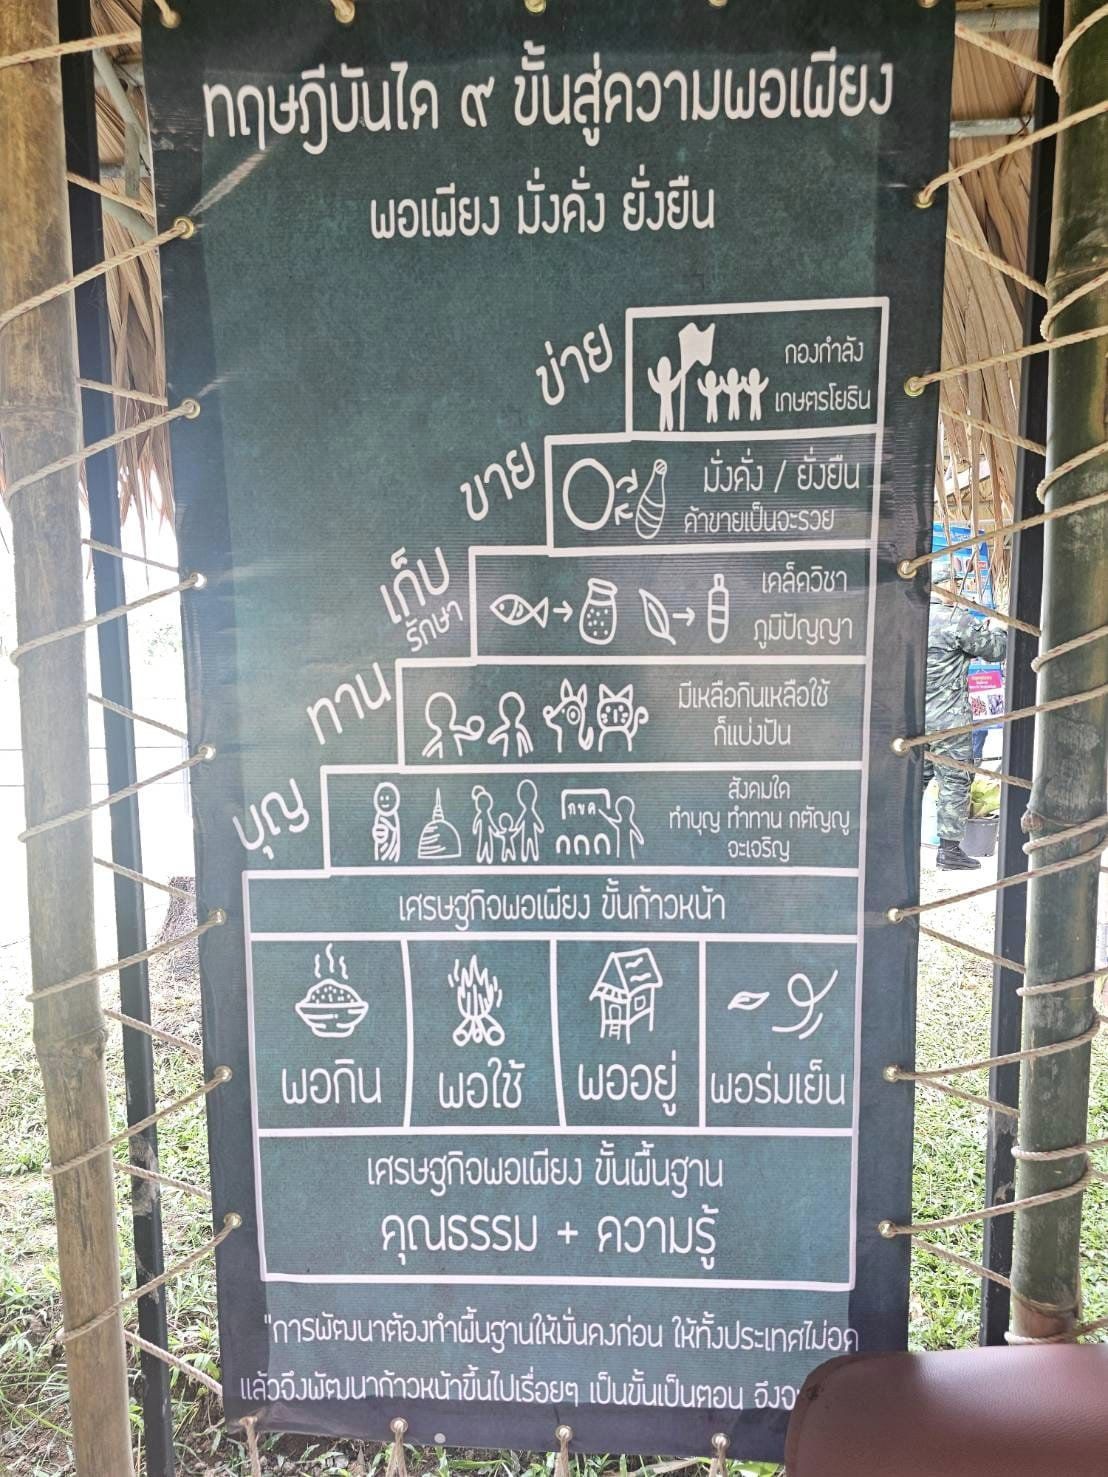 ทฤษฎีบันได ๙ ขั้นสู่ความพอเพียง
พอเพียง มั่งคั่ง ยั่งยืน
ข่าย
กองกำลัง
เกษตรโยธิน
ขาย
มั่งคั่ง / ยั่งยืน
ค้าขายเป็นจะรวย
เก็บ
รักษา
เคล็ดวิชา
ภูมิปัญญา
ทาน
มีเหลือกินเหลือใช้
ก็แบ่งปัน
บุญ
กขค
สังคมใด
ทำบุญ ทำทาน กตัญญู
จะเจริญ
เศรษฐกิจพอเพียง ขั้นก้าวหน้า
พอกิน
พอใช้
พออยู่
พอร่มเย็น
เศรษฐกิจพอเพียง ขั้นพื้นฐาน
คุณธรรม + ความรู้
"การพัฒนาต้องทำพื้นฐานให้มั่นคงก่อน ให้ทั้งประเทศไม่อด
แล้วจึงพัฒนาก้าวหน้าขึ้นไปเรื่อยๆ เป็นขั้นเป็นตอน จึง